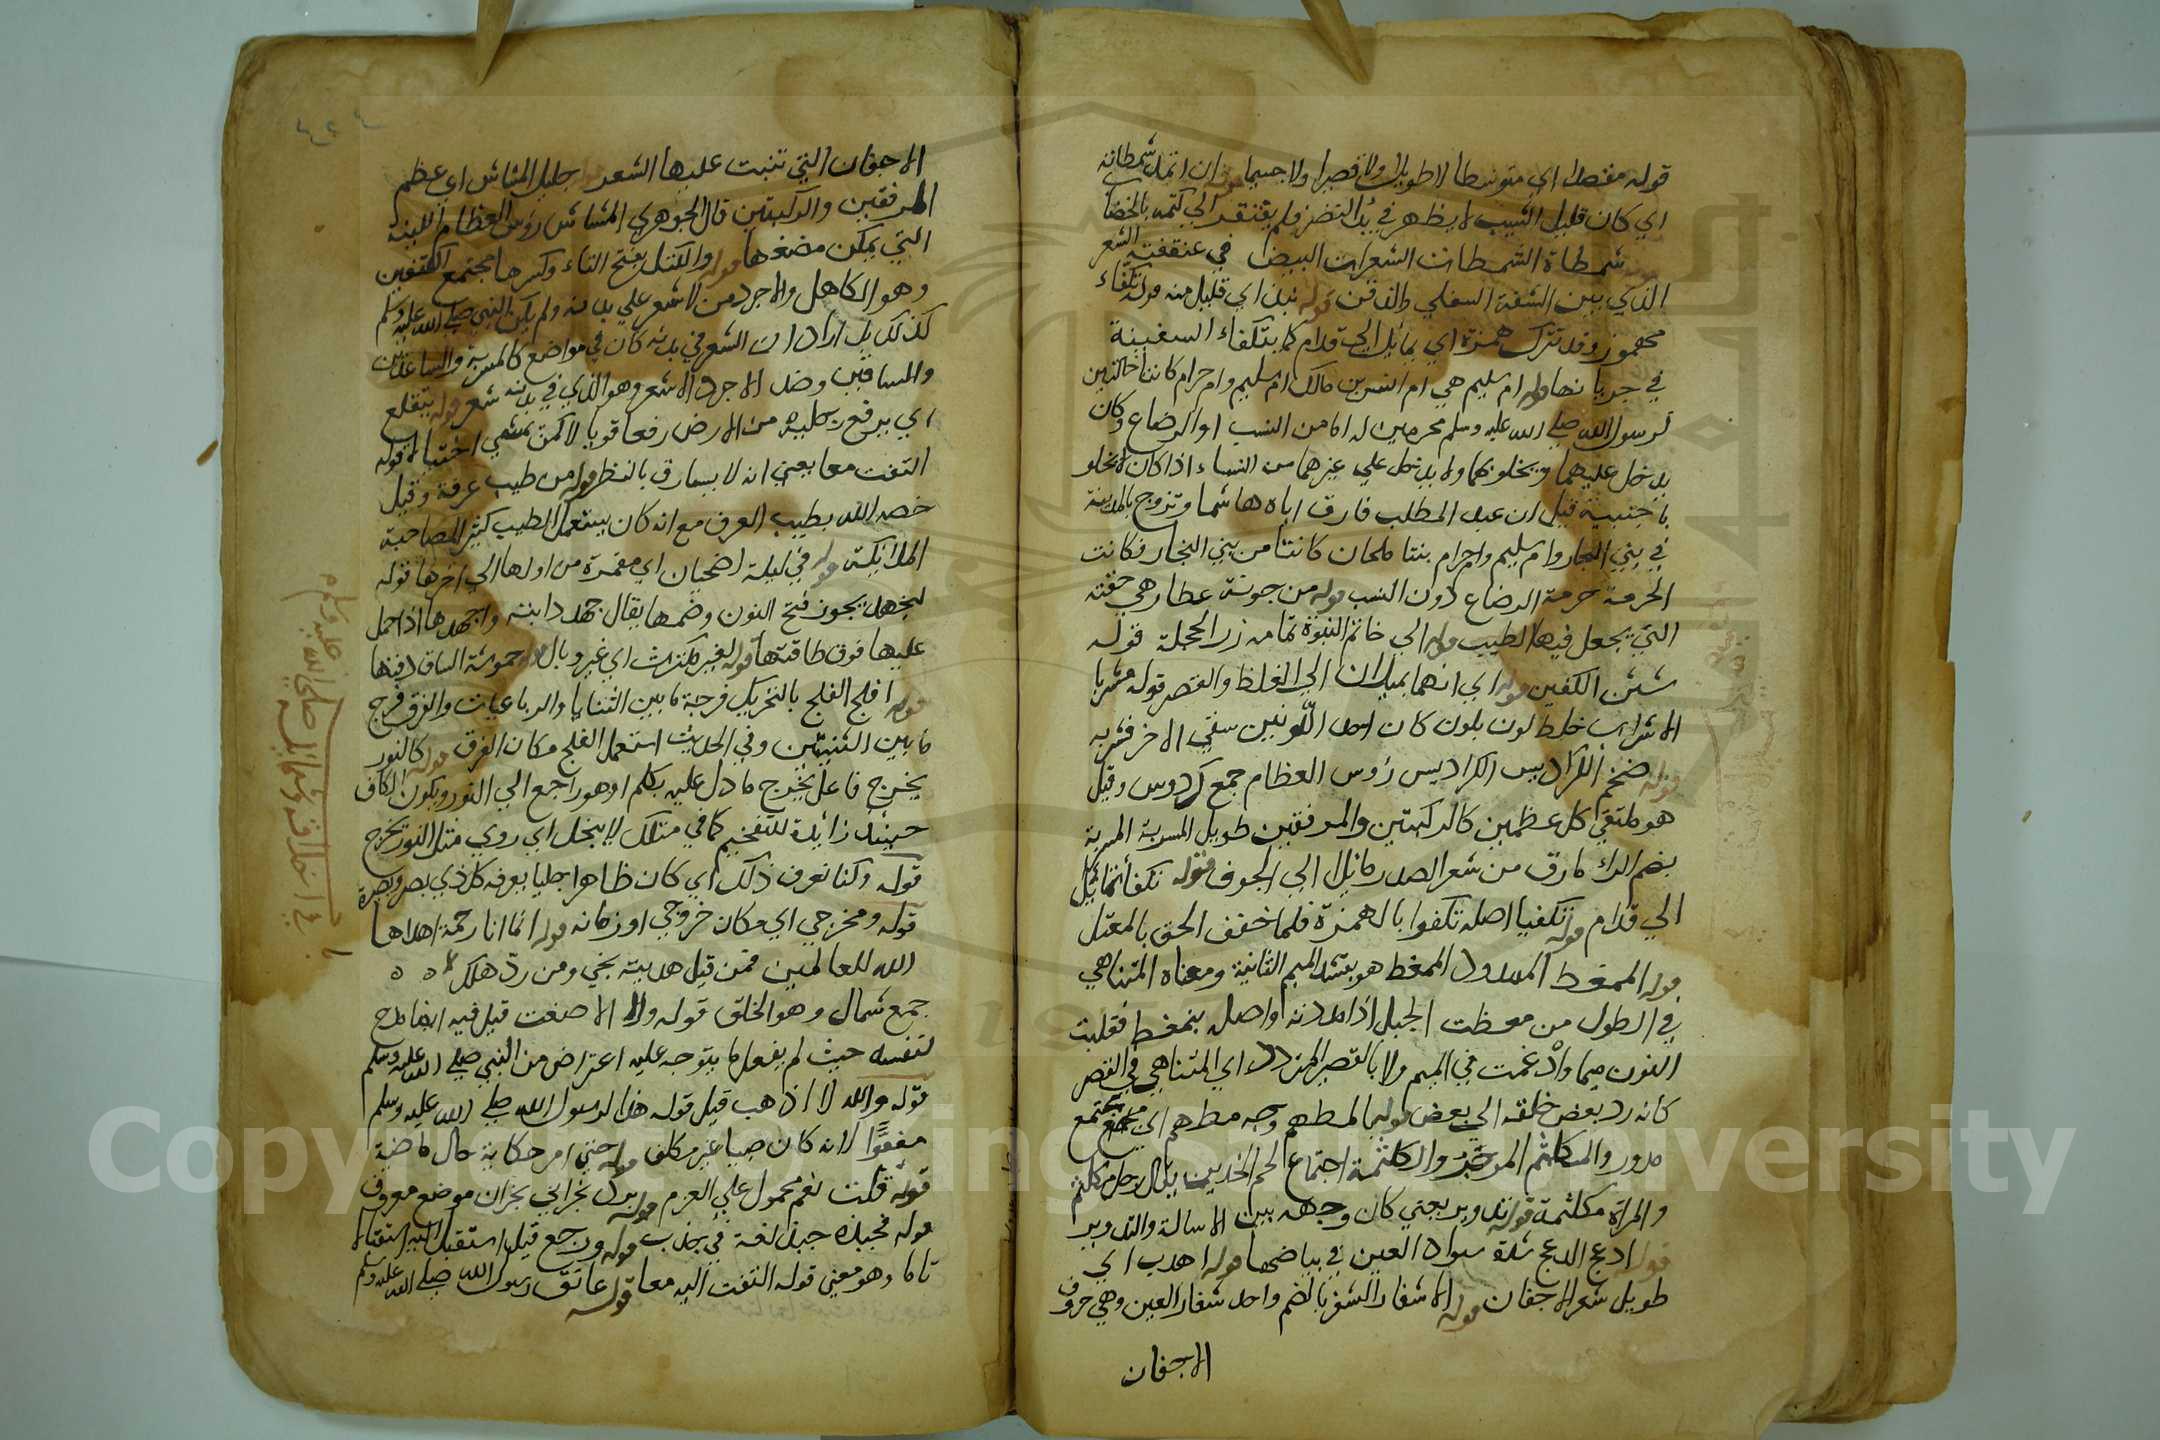 قوله مقصدا اي متوسطا لا طويلا ولا قصيرا ولا جسيما قوله ان اعد شمطاته
اي كان قليل الشيب لا يظهر في بدا النضر فلم يفتقر الي كتمه بالخضاب
شمطاة الشمطات الشعرات البيض في عنفقته الشعر
الذي بين الشفة السفلي والذقن قوله نبذ اي قليل منه قوله تكفاء
مهموز وقد تترك همزة اي يمايل الي قدام كما يتكفاء السفينة
في جريانها قوله ام سليم هي ام انس بن مالك ام سليم وام حرام كانتا خالتين
لرسول الله صلي الله عليه وسلم محرمين له اما من النسب او الرضاع وكان
يدخل عليهما ويخلو بهما ولا يدخل علي غيرهما من النساء اذا كان لا يخلو
باجنبية قيل ان عبد المطلب فارق اباه هاشما وتزوج بالمدينة
في بني النجار وام سليم وام حرام بنتا ملحان كانتا من بني النجار فكانت
الحرمة حرمة الرضاع دون النسب قوله من جونة عطار هي حقته
التي يجعل فيها الطيب قوله الي خاتم النبوة تمامه زر الحجلة قوله
شثن الكفين قوله اي انهما يميلان الي الغلظ والقصر قوله مشربا
الاشراب خلط لون بلون كان احد اللونين سقي الاخر فشربه
قوله ضخم الكراديس الكراديس رؤس العظام جمع كردوس وقيل
هو ملتقي كل عظمين كالركبتين والمرفقين طويل المسربة المسربة
بضم الراء ما رق من شعر الصدر مايلا الي الجوف قوله تكفأ تمايل
الي قدام قوله تكفيا اصله تكفوا بالهمزة فلما خفف الحق بالمعتل
قوله الممغط الممدود الممغط هو بتشد الميم الثانية ومعناه المتناهي
في الطول من مغطت الحبل اذا مددته واصله ينمغط فقلبت
النون ميما وادغمت في الميم ولا بالقصير المتردد اي المتناهي في القصر
كانه رد بعض خلقه الي بعض قوله بالمطهم وجه مطهم اي مجتمع
مدور والمكلثم المدور والكلثمة اجتماع لحم الخدين يقال رجل مكلثم
والمراة مكلثمة قوله تدوير يعني كان وجهه بين الاسالة والتدوير
قوله ادعج الدعج شدة سواد العين في بياضها قوله اهدب اي
طويل شعر الاجفان قوله الاشفار الشفر بالضم واحد شفار العين وهي حروف
الاجفان
الاجفان التي تنبت عليها الشعر جليل المشاش اي عظم
المرفقين والركبتين قال الجوهري المشاش رؤس العظام اللينة
التي يمكن مضغها قوله والكتد بفتح التاء وكسرها مجتمع الكتفين
وهو الكاهل والاجرد من لا شعر علي بدنه ولم يكن النبي صلي الله عليه وسلم
كذلك بل اراد ان الشعر في بدنه كان في مواضع كالمسربة والساعدين
والساقين وضد الاجرد الاشعر وهو الذي في بدنه شعر قوله يتقلع
اي يرفع رجليه من الارض رفعا قويا لا كمن يمشي اختيالا قوله
التفت معا يعني انه لا يسارق بالنظر قوله من طيب عرقه وقيل
خصه الله بطيب العرق مع انه كان يستعمل الطيب كثير المصاحبة
الملائكة قوله في ليلة اضحيان اي مقمرة من اولها الي اخرها قوله
لنجهد يجوز فتح النون وضمها يقال جهد دابته واجهدها اذا حمل
عليها فوق طاقتها قوله لغير مكترث اي غير وبال قوله حموشة الساق دقتها
قوله افلج الفلج بالتحريك فرجة ما بين الثنايا والرباعيات والفرق فرج
ما بين الثنيتين وفي الحديث استعمل الفلج مكان الفرق قوله كالنور
يخرج فاعل يخرج ما دل عليه بكلم او هو راجع الي النور ويكون الكاف
حينئذ زائدة للتفخيم كما في مثلك لا يبخل اي روي مثل النور يخرج
قوله وكنا نعرف ذلك اي كان ظاهرا جليا يعرفه كل ذي بصر وبصيرة
قوله ومخرجي اي مكان خروجي او زمانه قوله انما انا رحمة اهداها
الله للعالمين فمن قبل هديته نجي ومن رد هلك
جمع شمال وهو الخلق قوله ولا الا صنعت قيل فيه ايضا مدح
لنفسه حيث لم يفعل ما يتوجه عليه اعتراض من النبي صلي الله عليه وسلم
قوله والله لا اذهب قيل قوله هذا لرسول الله صلي الله عليه وسلم
معفوا لانه كان صبيا غير مكلف قوله حتي امر حكاية حال ماضية
قوله قلت نعم محمول علي العزم قوله برد نجراني نجران موضع معروف
قوله فجبذه جبذ لغة في جذب قوله ورجع قيل استقبل اليه استقبالا
تاما وهو معني قوله التفت اليه معا قوله عاتق رسول الله صلي الله عليه وسلم
في اخلاقه وشمايله صلي الله عليه وسلم